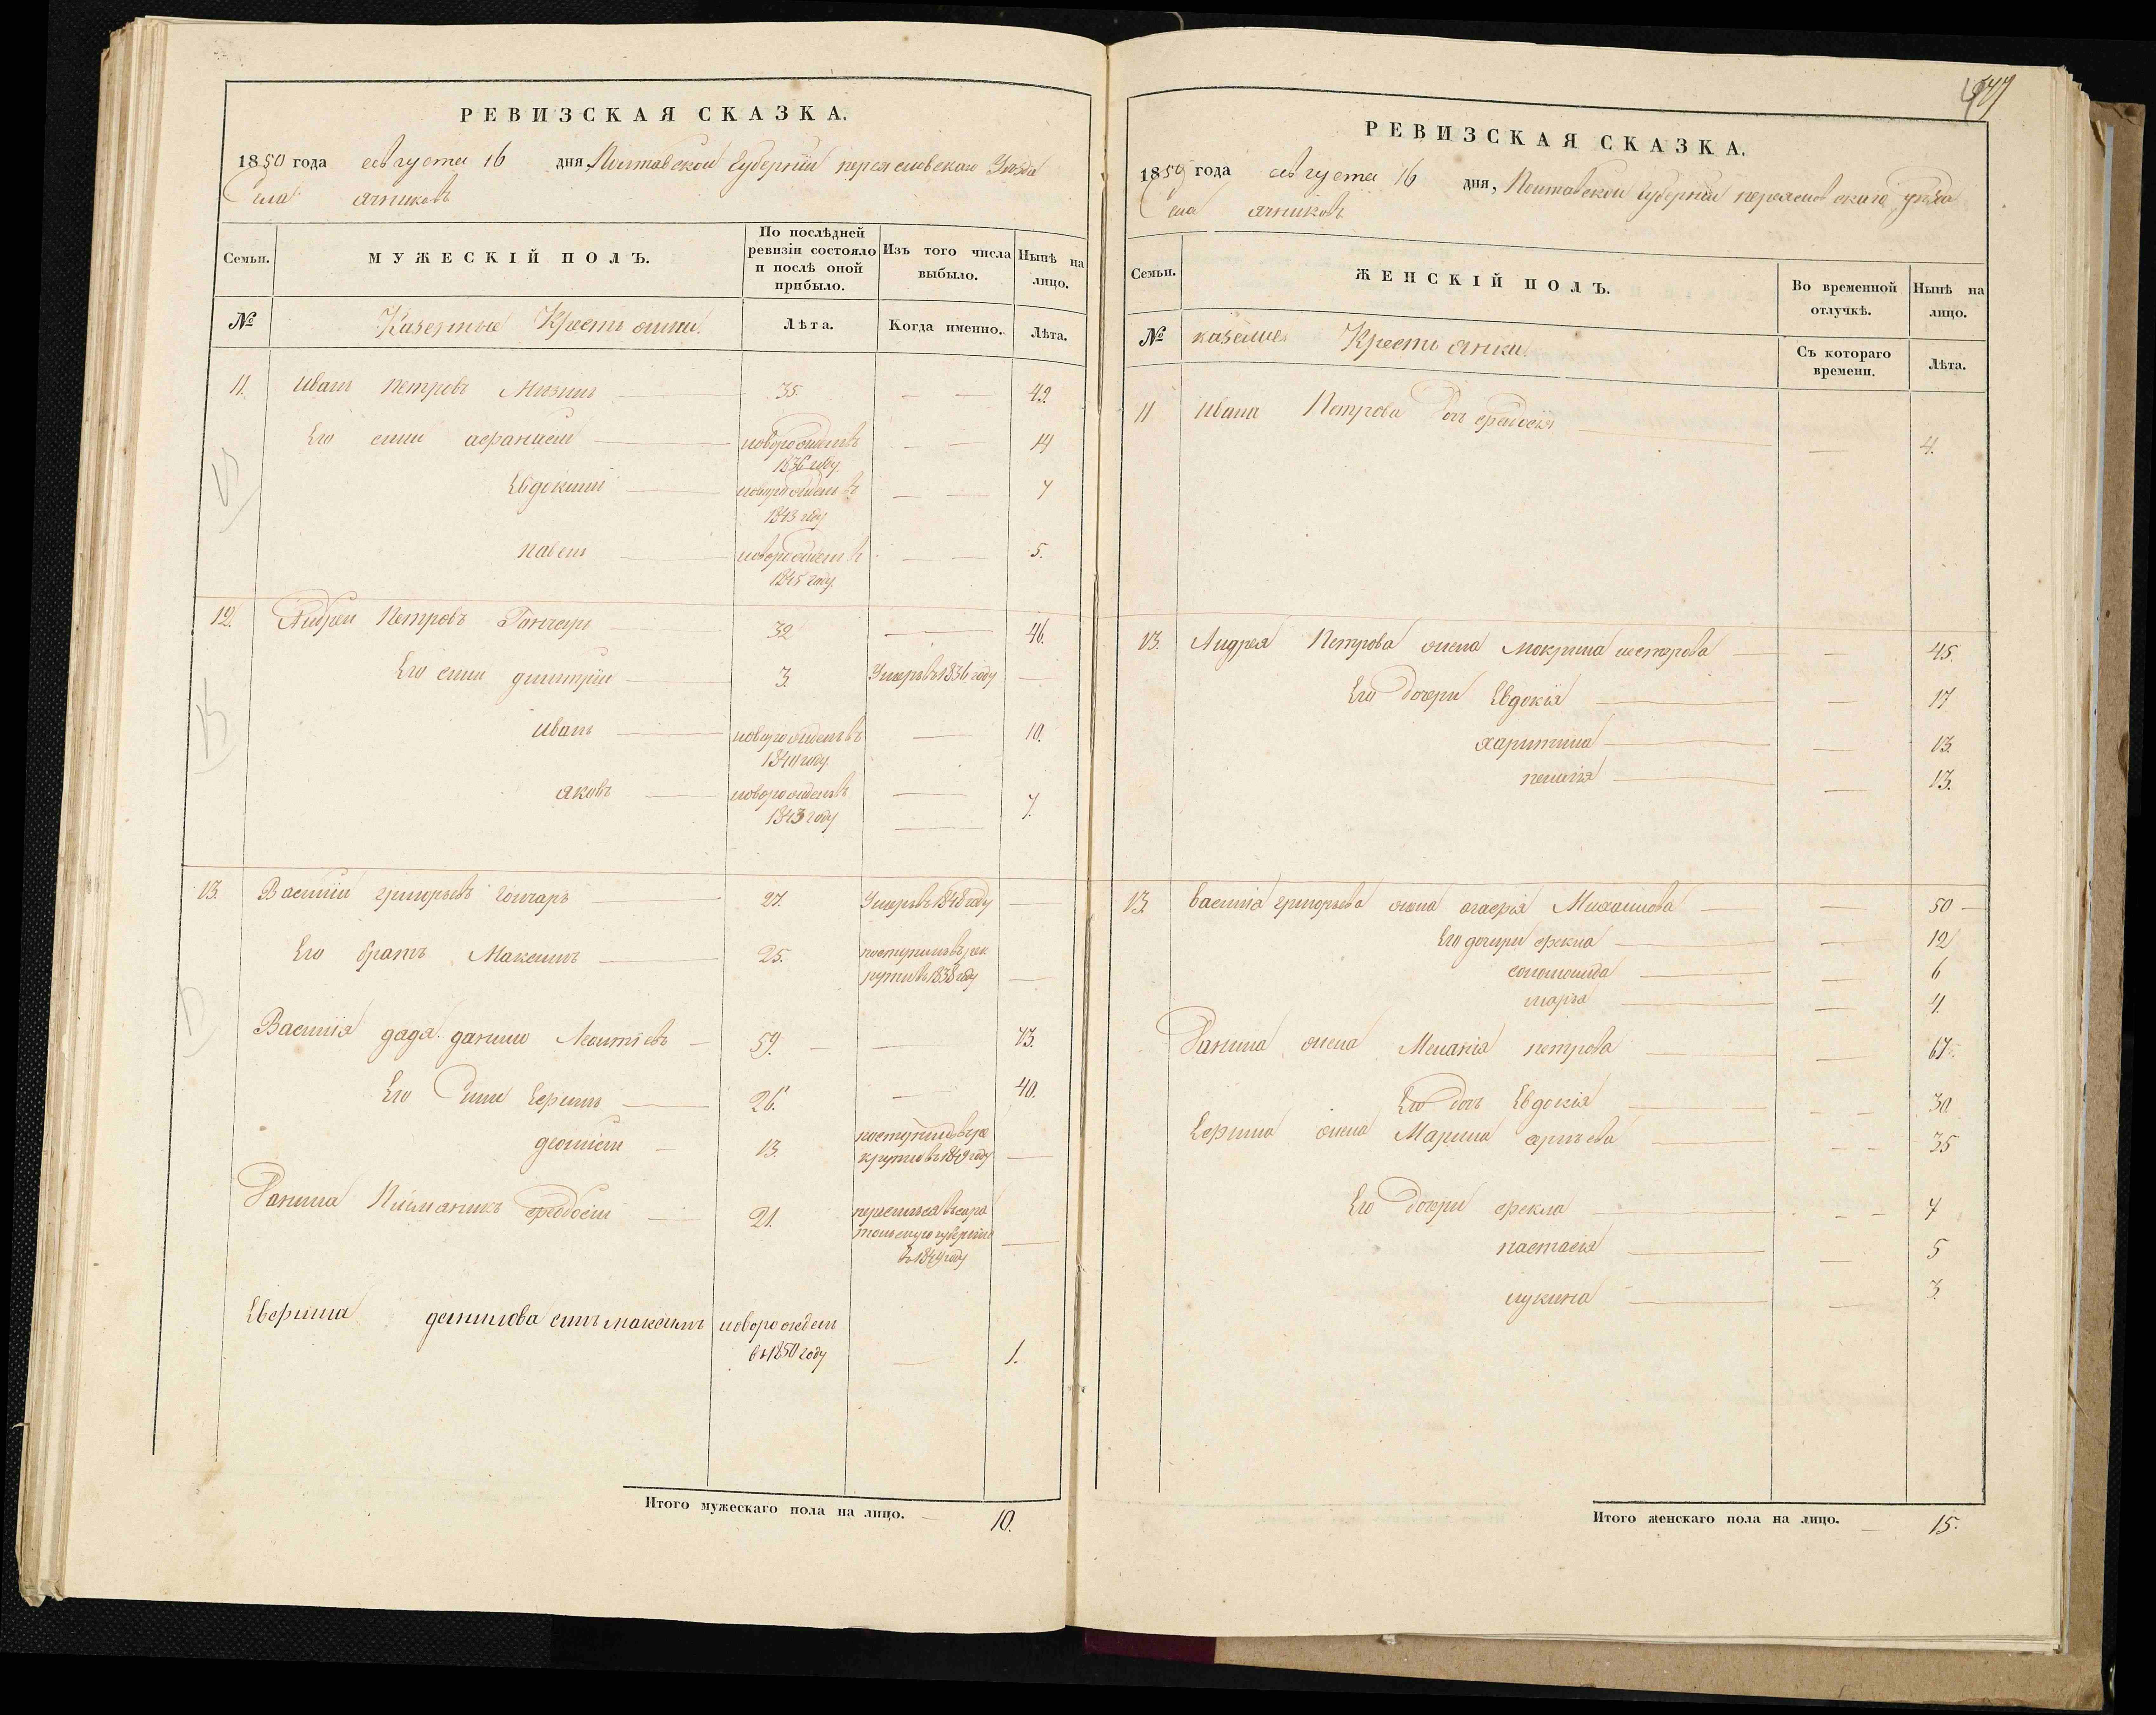 РЕВИЗСКАЯ СКАЗКА.
1850 года августа 16 дня, Полтавской Губернии переяславскаго Уезда
Села ячников
Семьи.
МУЖЕСКІЙ ПОЛЪ.
По послѣдней ревизіи состояло и послѣ оной прибыло.
Изъ того числа выбыло.
Нынѣ на лицо.
№
Казенные Крестьяни.
Лѣта.
Когда именно.
Лѣта.
11. Иванъ петровъ 35. 49.
Его сини афанасий новорожденъ 14
1836 году.
Евдокимъ новорожденъ 7
1843 году
павелъ новорожденъ 5.
1845 году.
12. Андрей Петровъ Гончаръ 32 46.
Его сини димитрій 3. Умеръ въ 1836 году
иванъ новорожденъ въ 10.
1840 году.
яковъ новорожденъ 7.
1843 году
13. Василій григорьевъ гончаръ 27. Умеръ въ 1848 году
Его братъ Максимъ 25. поступилъ въ рек
руты въ 1838 году
Василія дядя данило Леонтіевъ 59. 73.
Его Сини Ефимъ 26. 40.
деонисий 13. поступилъ въ ре
круты въ 1849 году
Данила феодосий 21.
губернию
въ 1849 году
данилова синъ максимъ новорожден
въ 1850 году 1.
Итого мужескаго пола на лицо. 10.
РЕВИЗСКАЯ СКАЗКА.
1850 года августа 16 дня, Полтавской Губернии переяславскаго уезда
Села ячников
Семьи.
ЖЕНСКІЙ ПОЛЪ.
Во временной отлучкѣ.
Нынѣ на лицо.
№
Крестьянки.
Съ котораго времени.
Лѣта.
11 Ивана Петрова Доч феодосія 4.
Андрея Петрова жена Мокрина 45.
Его дочери Евдокія 17
харитина 13.
13.
13. василія григорьева жена агафія Михаилова 50
Его дочери фекла 12
соломонида 6
марія 4.
Данила жена Меланія петрова
Его доч Евдокія 30
Ефима жена Марина 35
Его дочери фекла 7
настасія 5
лукина 3.
Итого женскаго пола на лицо. 15.